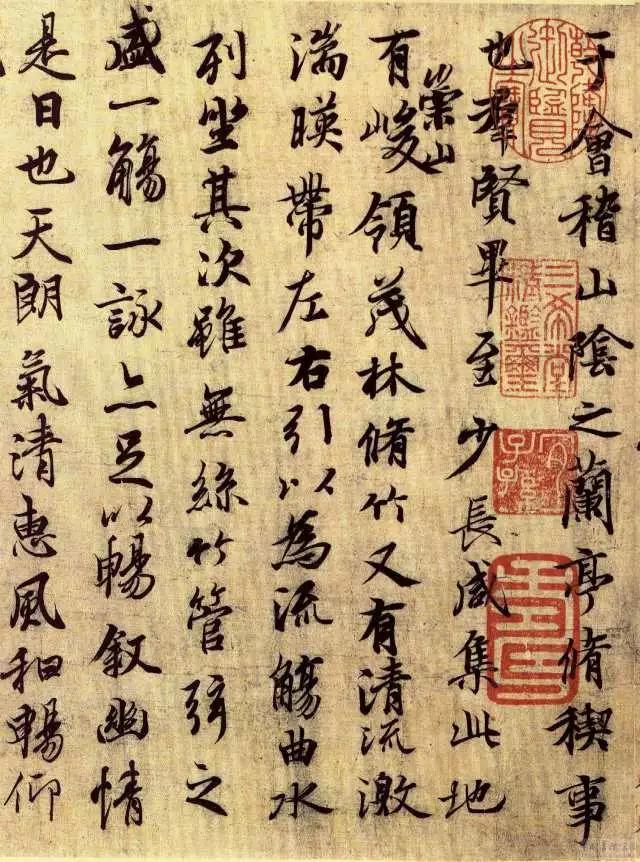 于會稽山陰之蘭亭脩稧事
也羣賢畢至少長咸集此地
有崇山峻領茂林脩竹又有清流激
湍暎帶左右引以為流觴曲水
列坐其次雖無絲竹管弦之
盛一觴一詠亦足以暢叙幽情
是日也天朗氣清惠風和暢仰
三希堂精鑑璽
宜子孫